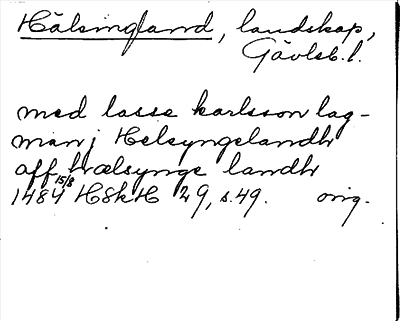 Hälsingland, landskap,
Gävleb. l.
med lasse karlsson lag-
man j Helsyngelandh
aff hælsynge landh
1484 15/8 HSkH 29, s. 49. orig.